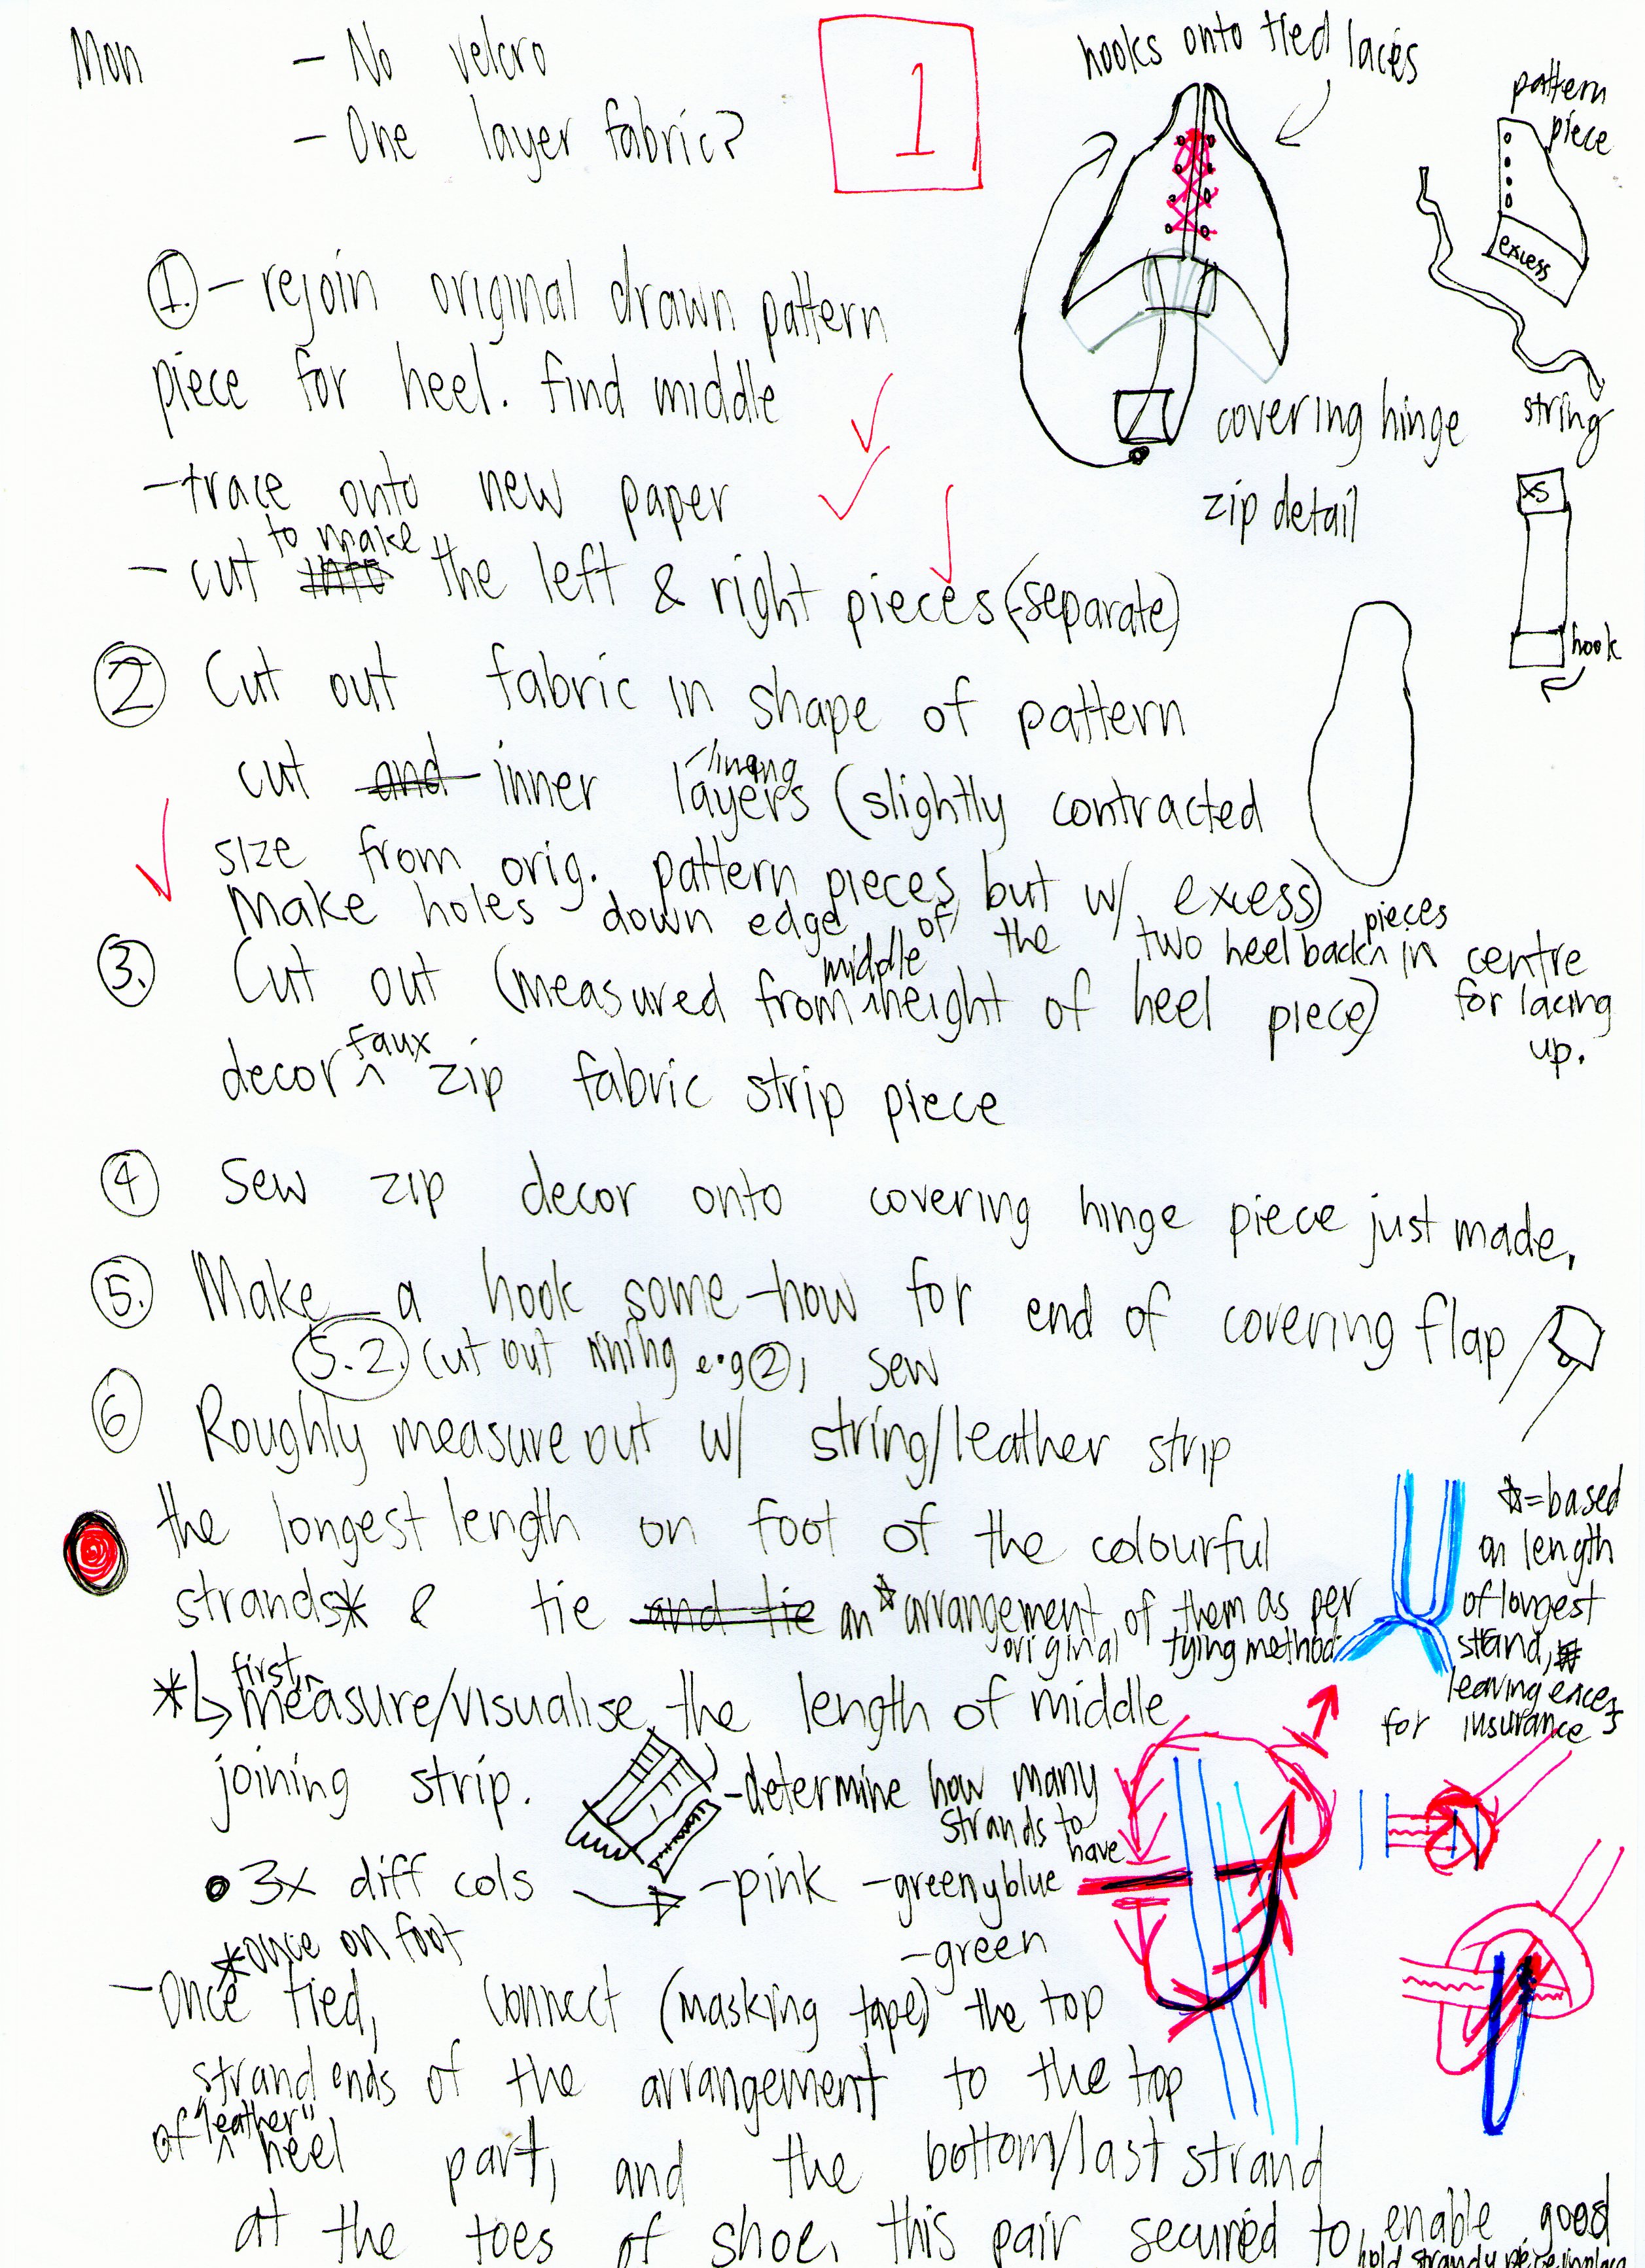 Mon - No velcro
- One layer fabric?
1
hooks onto tied laces
pattern
piece
excess
string
covering hinge
zip detail
XS
hook
1. - rejoin original drawn pattern
piece for heel. find middle
- trace onto new paper
to make
- cut into the left & right pieces (separate)
2 Cut out fabric in shape of pattern
lining
cut and inner layers (slightly contracted
size from orig. pattern pieces but w/ excess)
Make holes down edge of the two heel back pieces in centre
for lacing
up.
middle
3. Cut out (measured from height of heel piece)
faux
decor zip fabric strip piece
4 Sew zip decor onto covering hinge piece just made.
5. Make a hook some-how for end of covering flap
5.2. Cut out lining e.g 2, sew
6 Roughly measure out w/ string/leather strip
the longest length on foot of the colourful
strands* & tie and tie an ☆ arrangement of them as per
original tying method
☆ = based
on length
of longest
strand,
leaving excess
for insurance
first
* ↳ measure/visualise the length of middle
joining strip.
- determine how many
strands to
have
• 3x diff cols → - pink - greenyblue
- green
*once on foot
- Once tied, connect (masking tape) the top
strand ends of the arrangement to the top
of "leather" heel part, and the bottom/last strand
at the toes of shoe, this pair secured to enable good
hold